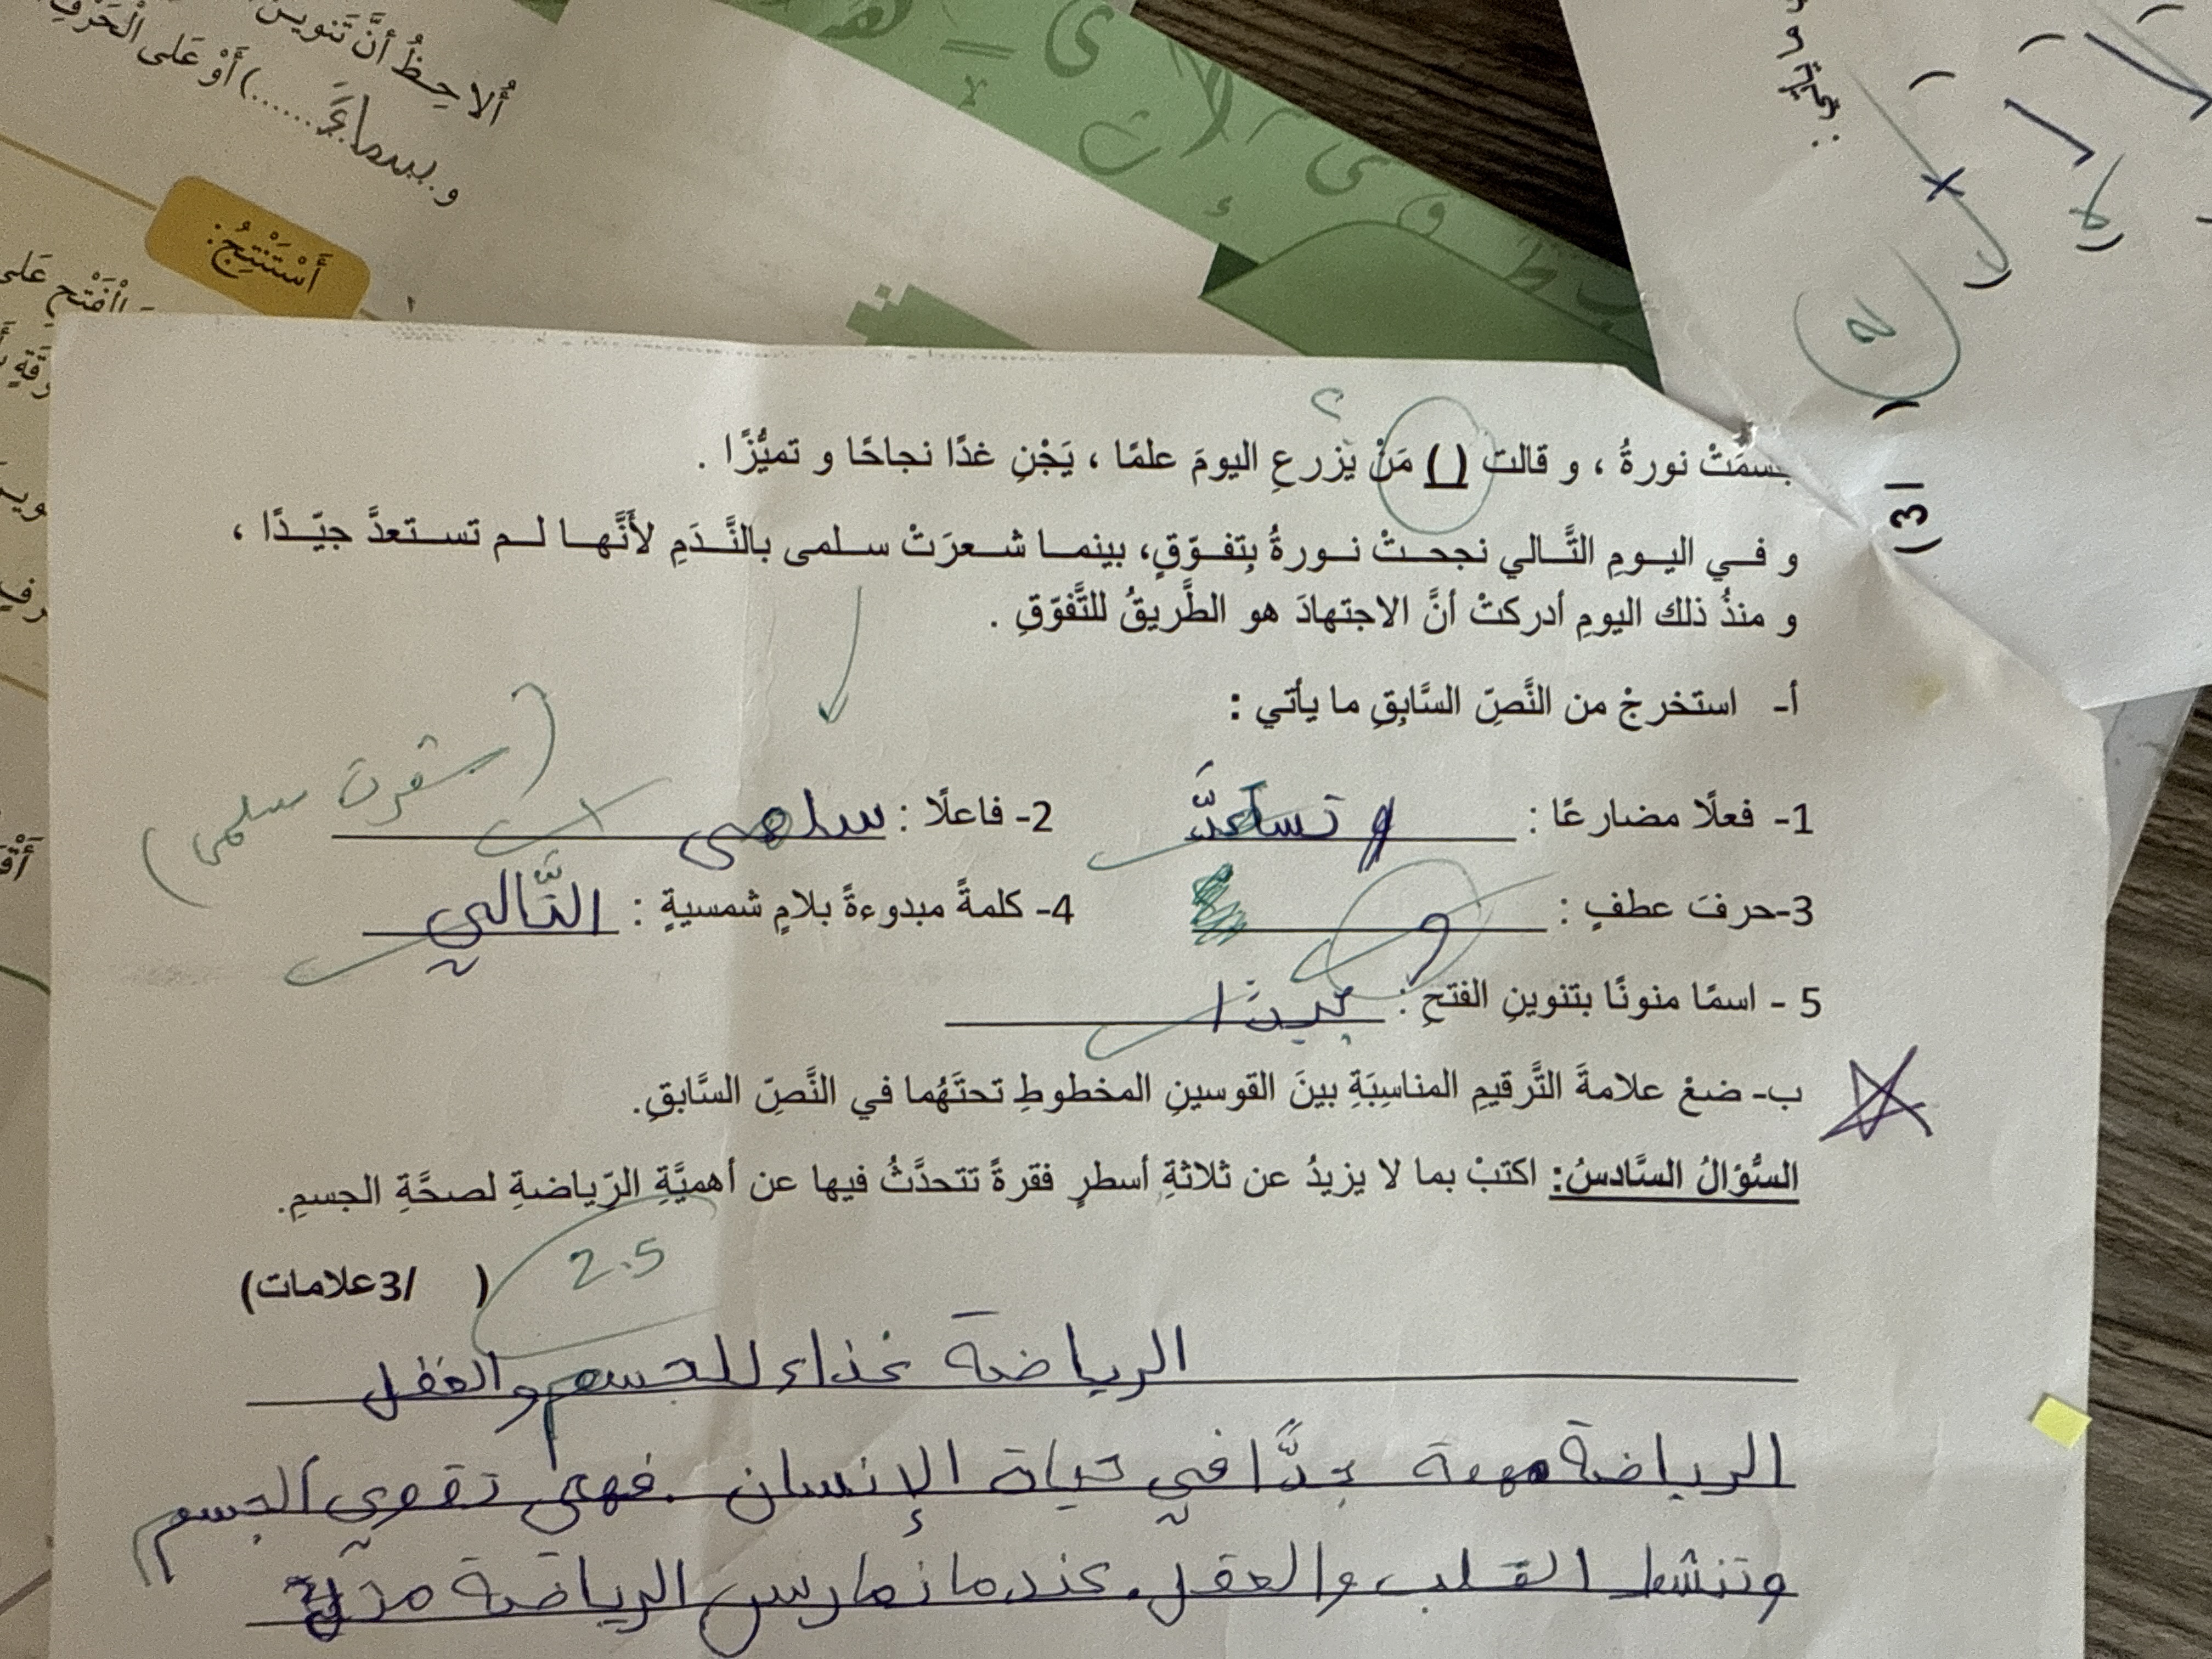 أُلاحِظُ أنَّ تَنوين
و بسماءً ......) أَوْ عَلى الْحَرْفِ
أَسْتَنْتِجُ:
الْفَتْحِ عَلى
بتسمَتْ نورةُ ، و قالت ( ) مَنْ يَزرعِ اليومَ علمًا ، يَجْنِ غدًا نجاحًا و تميُّزًا .
و في اليومِ التَّالي نجحتْ نورةُ بِتفوّقٍ، بينما شعرَتْ سلمى بالنَّدَمِ لأَنَّها لم تستعدَّ جيّدًا ،
و منذُ ذلك اليومِ أدركتْ أنَّ الاجتهادَ هو الطَّريقُ للتَّفوّقِ .
أ- استخرجْ من النَّصِّ السَّابِقِ ما يأتي :
1- فعلًا مضارعًا : تستعدَّ 2- فاعلًا : سلمى (شعرت سلمى)
3-حرفَ عطفٍ : و 4- كلمةً مبدوءةً بلامٍ شمسيةٍ : التَّالي
5 - اسمًا منونًا بتنوينِ الفتحِ : جيدًا
ب- ضعْ علامةَ التَّرقيمِ المناسِبَةِ بينَ القوسينِ المخطوطِ تحتَهُما في النَّصِّ السَّابقِ.
السُّؤالُ السَّادسُ: اكتبْ بما لا يزيدُ عن ثلاثةِ أسطرٍ فقرةً تتحدَّثُ فيها عن أهميَّةِ الرّياضةِ لصحَّةِ الجسمِ.
2.5
( /3علامات)
الرياضة غذاء للجسم والعقل
الرياضة مهمة جدًّا في حياة الإنسان. فهي تقوي الجسم
وتنشط القلب والعقل. عندما نمارس الرياضة
(3/